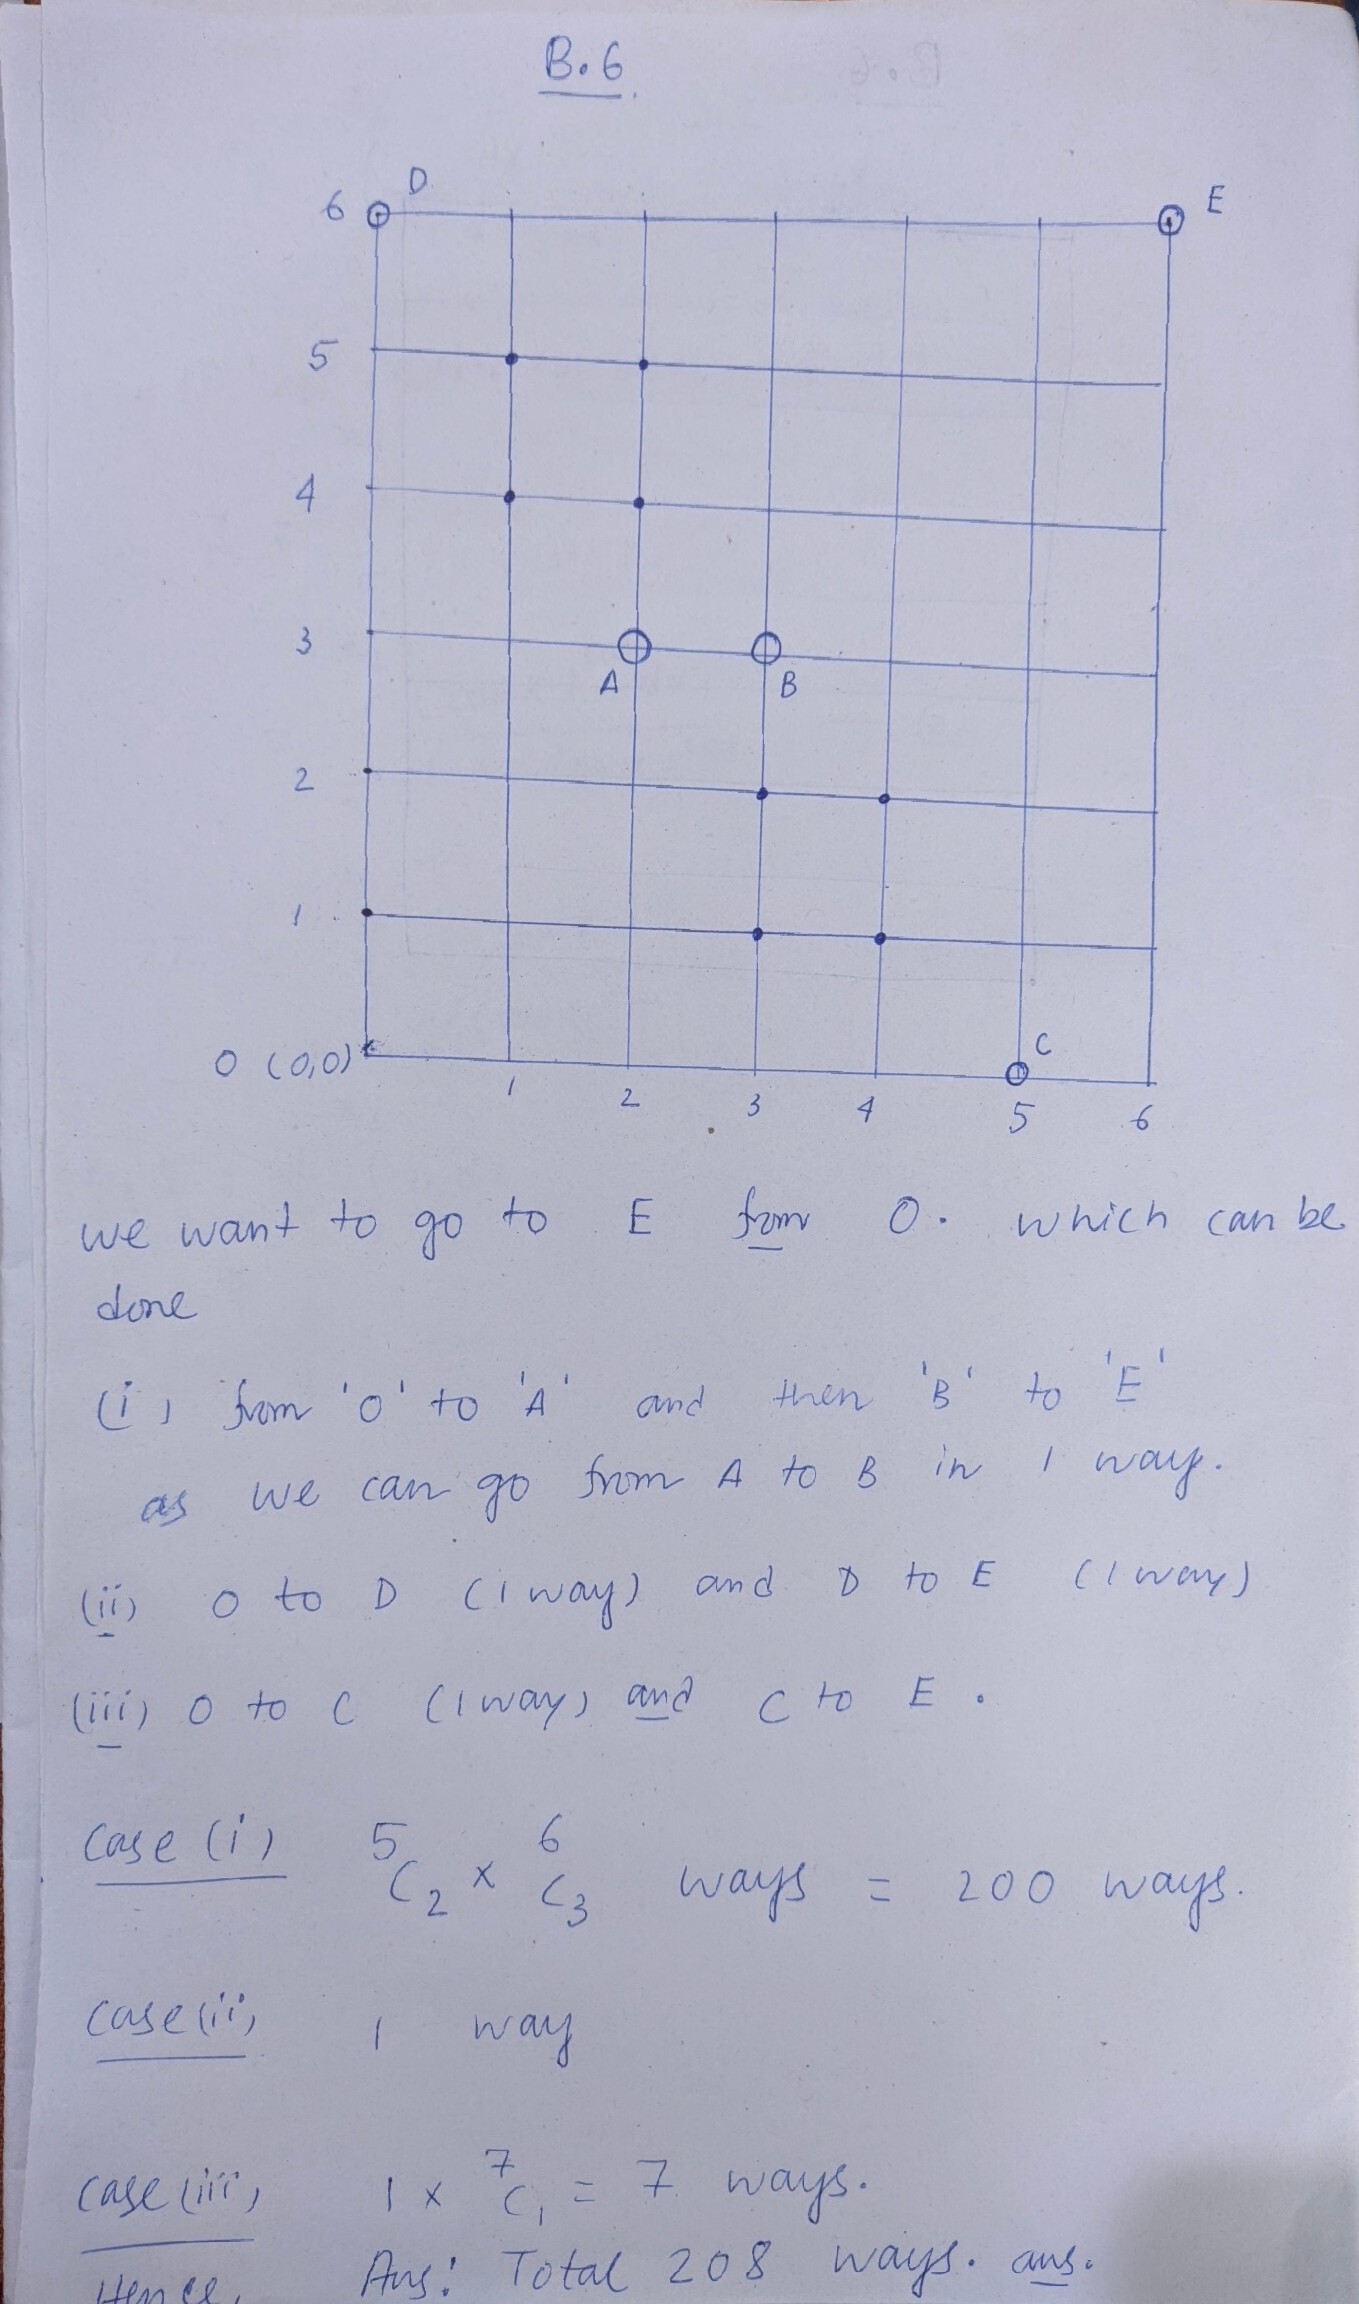 B.6
D
E
6
5
4
3
A
B
2
1
C
O (0,0)
1 2 3 4 5 6
we want to go to E from O. which can be
done
(i) from 'O' to 'A' and then 'B' to 'E'
as we can go from A to B in 1 way.
(ii) O to D (1 way) and D to E (1 way)
(iii) O to C (1 way) and C to E.
Case (i) ⁵C₂ × ⁶C₃ ways = 200 ways.
Case (ii) 1 way
Case (iii) 1 × ⁷C₁ = 7 ways.
Hence, Ans: Total 208 ways. ans.